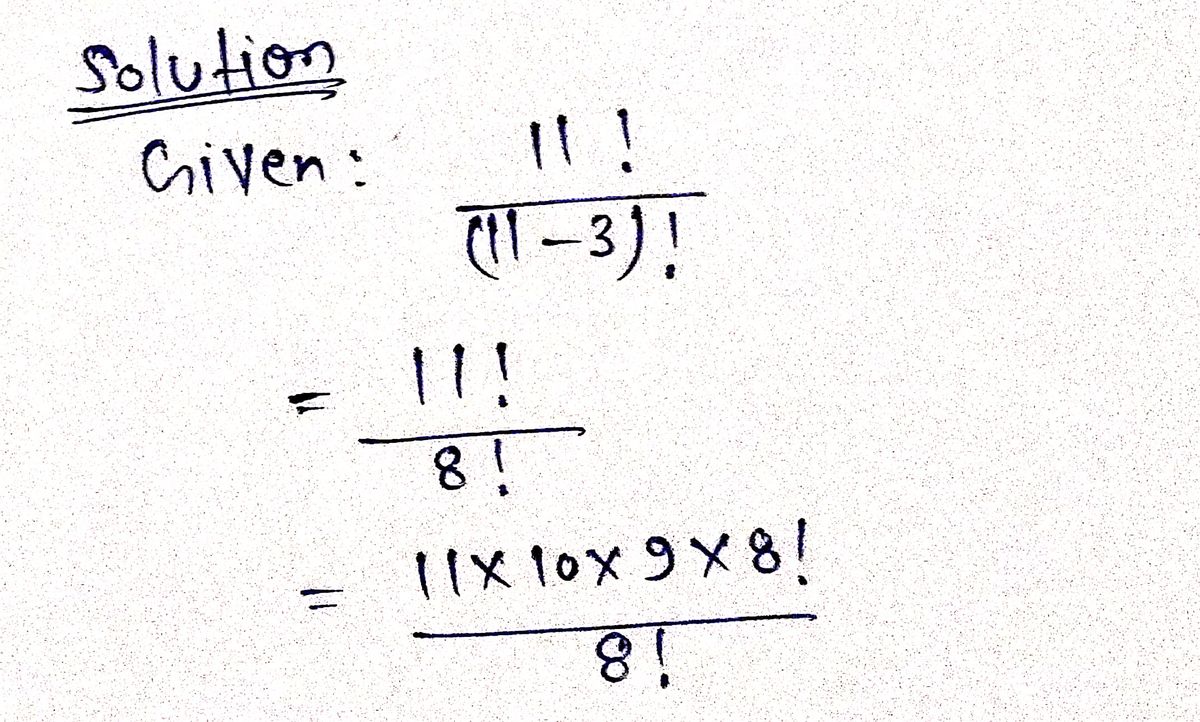 Solution
Given: 11!
(11-3)!
= 11!
8!
= 11×10×9×8!
8!